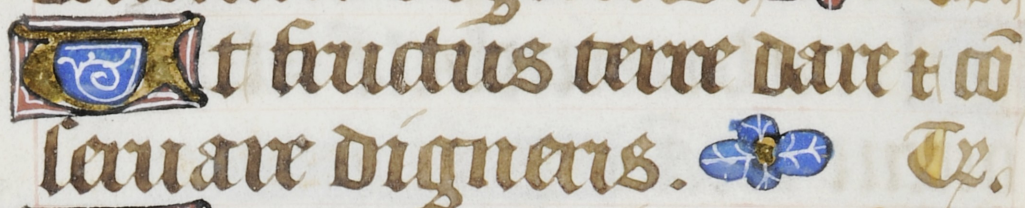 Ut fructus terre dare ⁊ cō
seruare digneris. Te r̵.